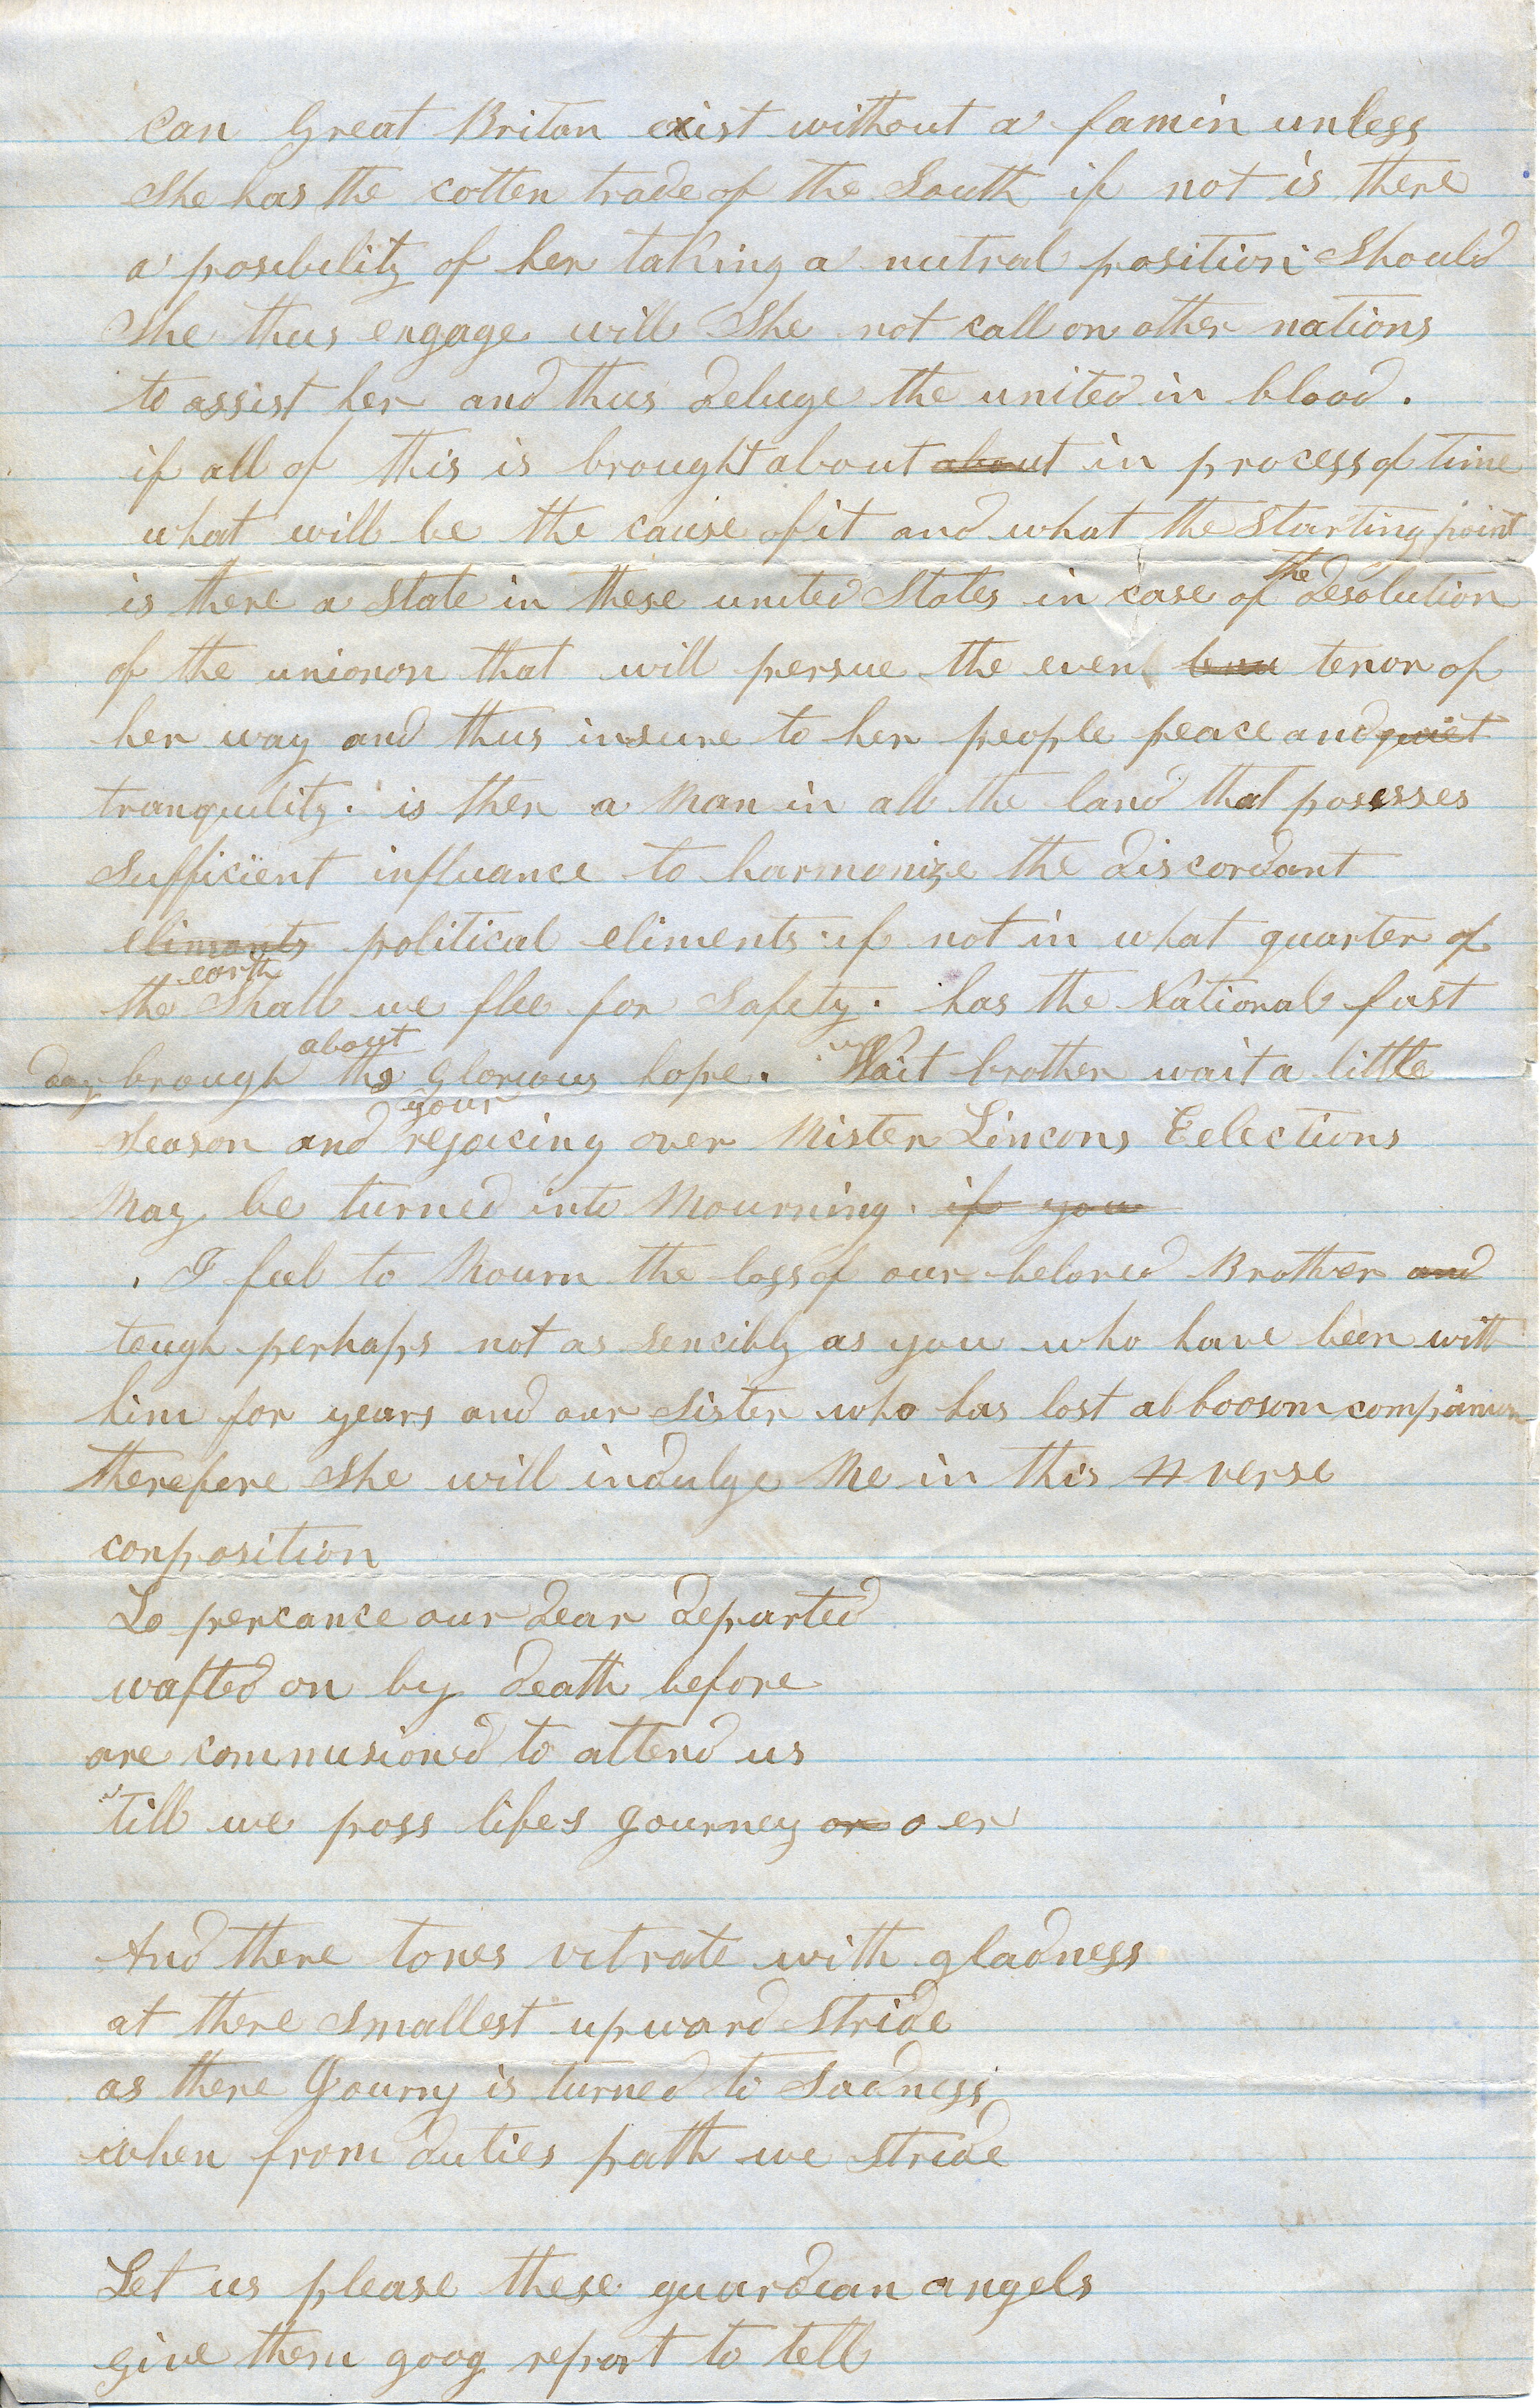 can Great Britan exist without a famin unless
she has the cotten trade of the South if not is there
a posibility of her taking a nutral position Should
She thus engage will She not call on other nations
to assist her and thus deluge the united in blood.
if all of this is brought about about in process of time
what will be the cause of it and what the starting point
is there a State in these united States in case of the desolution
of the unionon that will persue the even tenor of
her way and thus insure to her people peace and quiet
tranquility. is ther a Man in all the land that posesses
sufficient influance to harmonize the discordant
eliments political eliments if not in what quarter of
the earth Shall we flee for Safety. has the National fast
day brough about the glorious hope. Wait brother wait a little
Season and your rejoicing over Mister Lincons Eelections
May be turned into Mourning. if you
I feel to Mourn the loss of our beloved Brother and
tough perhaps not as Sencibly as you who have been with
him for years and our Sister who has lost a boosom
therefore She will indulge Me in this 4 verse
conposition
Lo percance our dear departed
wafted on by death before
are commusioned to attend us
till we pass lifes Journey or oer
And there tones vibrate with gladness
at there smallest upward Stride
as there Journy is turned to Sadness
when from duties path we Stride
Let us please these guardian angels
give them goog report to tell